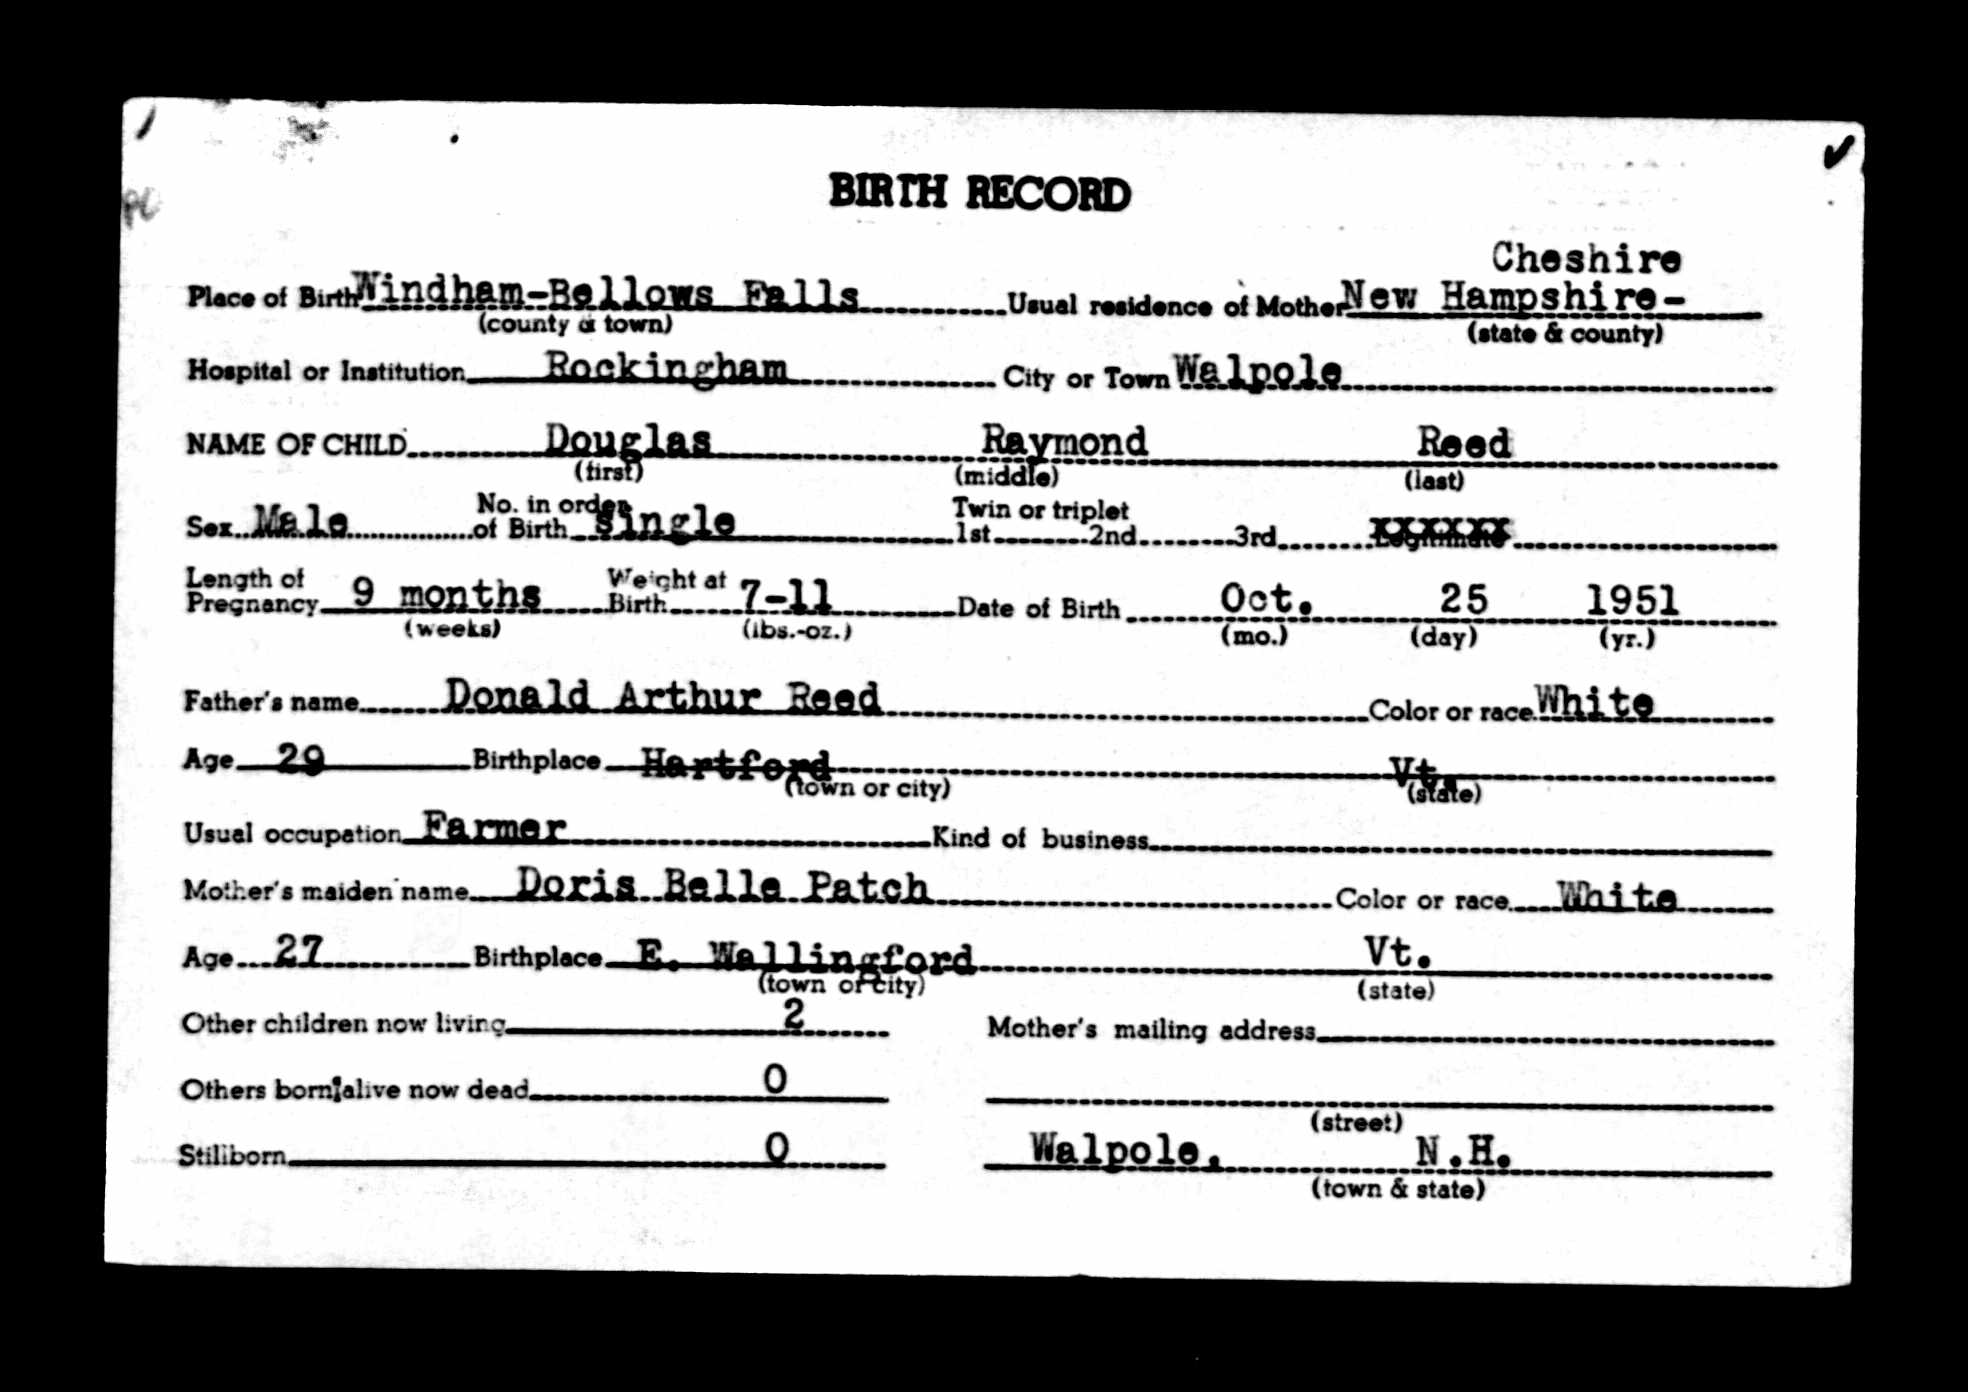 BIRTH RECORD
Cheshire
Place of Birth Windham-Bellows Falls Usual residence of Mother New Hampshire-
(county & town) (state & county)
Hospital or Institution Rockingham City or Town Walpole
NAME OF CHILD Douglas Raymond Reed
(first) (middle) (last)
No. in order Twin or triplet
Sex Male of Birth single 1st 2nd 3rd xxxxxx
Length of Weight at
Pregnancy 9 months Birth 7-11 Date of Birth Oct. 25 1951
(weeks) (lbs.-oz.) (mo.) (day) (yr.)
Father's name Donald Arthur Reed Color or race White
Age 29 Birthplace Hartford Vt.
(town or city) (state)
Usual occupation Farmer Kind of business
Mother's maiden name Doris Belle Patch Color or race White
Age 27 Birthplace E. Wallingford Vt.
(town or city) (state)
Other children now living 2 Mother's mailing address
Others born alive now dead 0
(street)
Stillborn 0 Walpole, N.H.
(town & state)